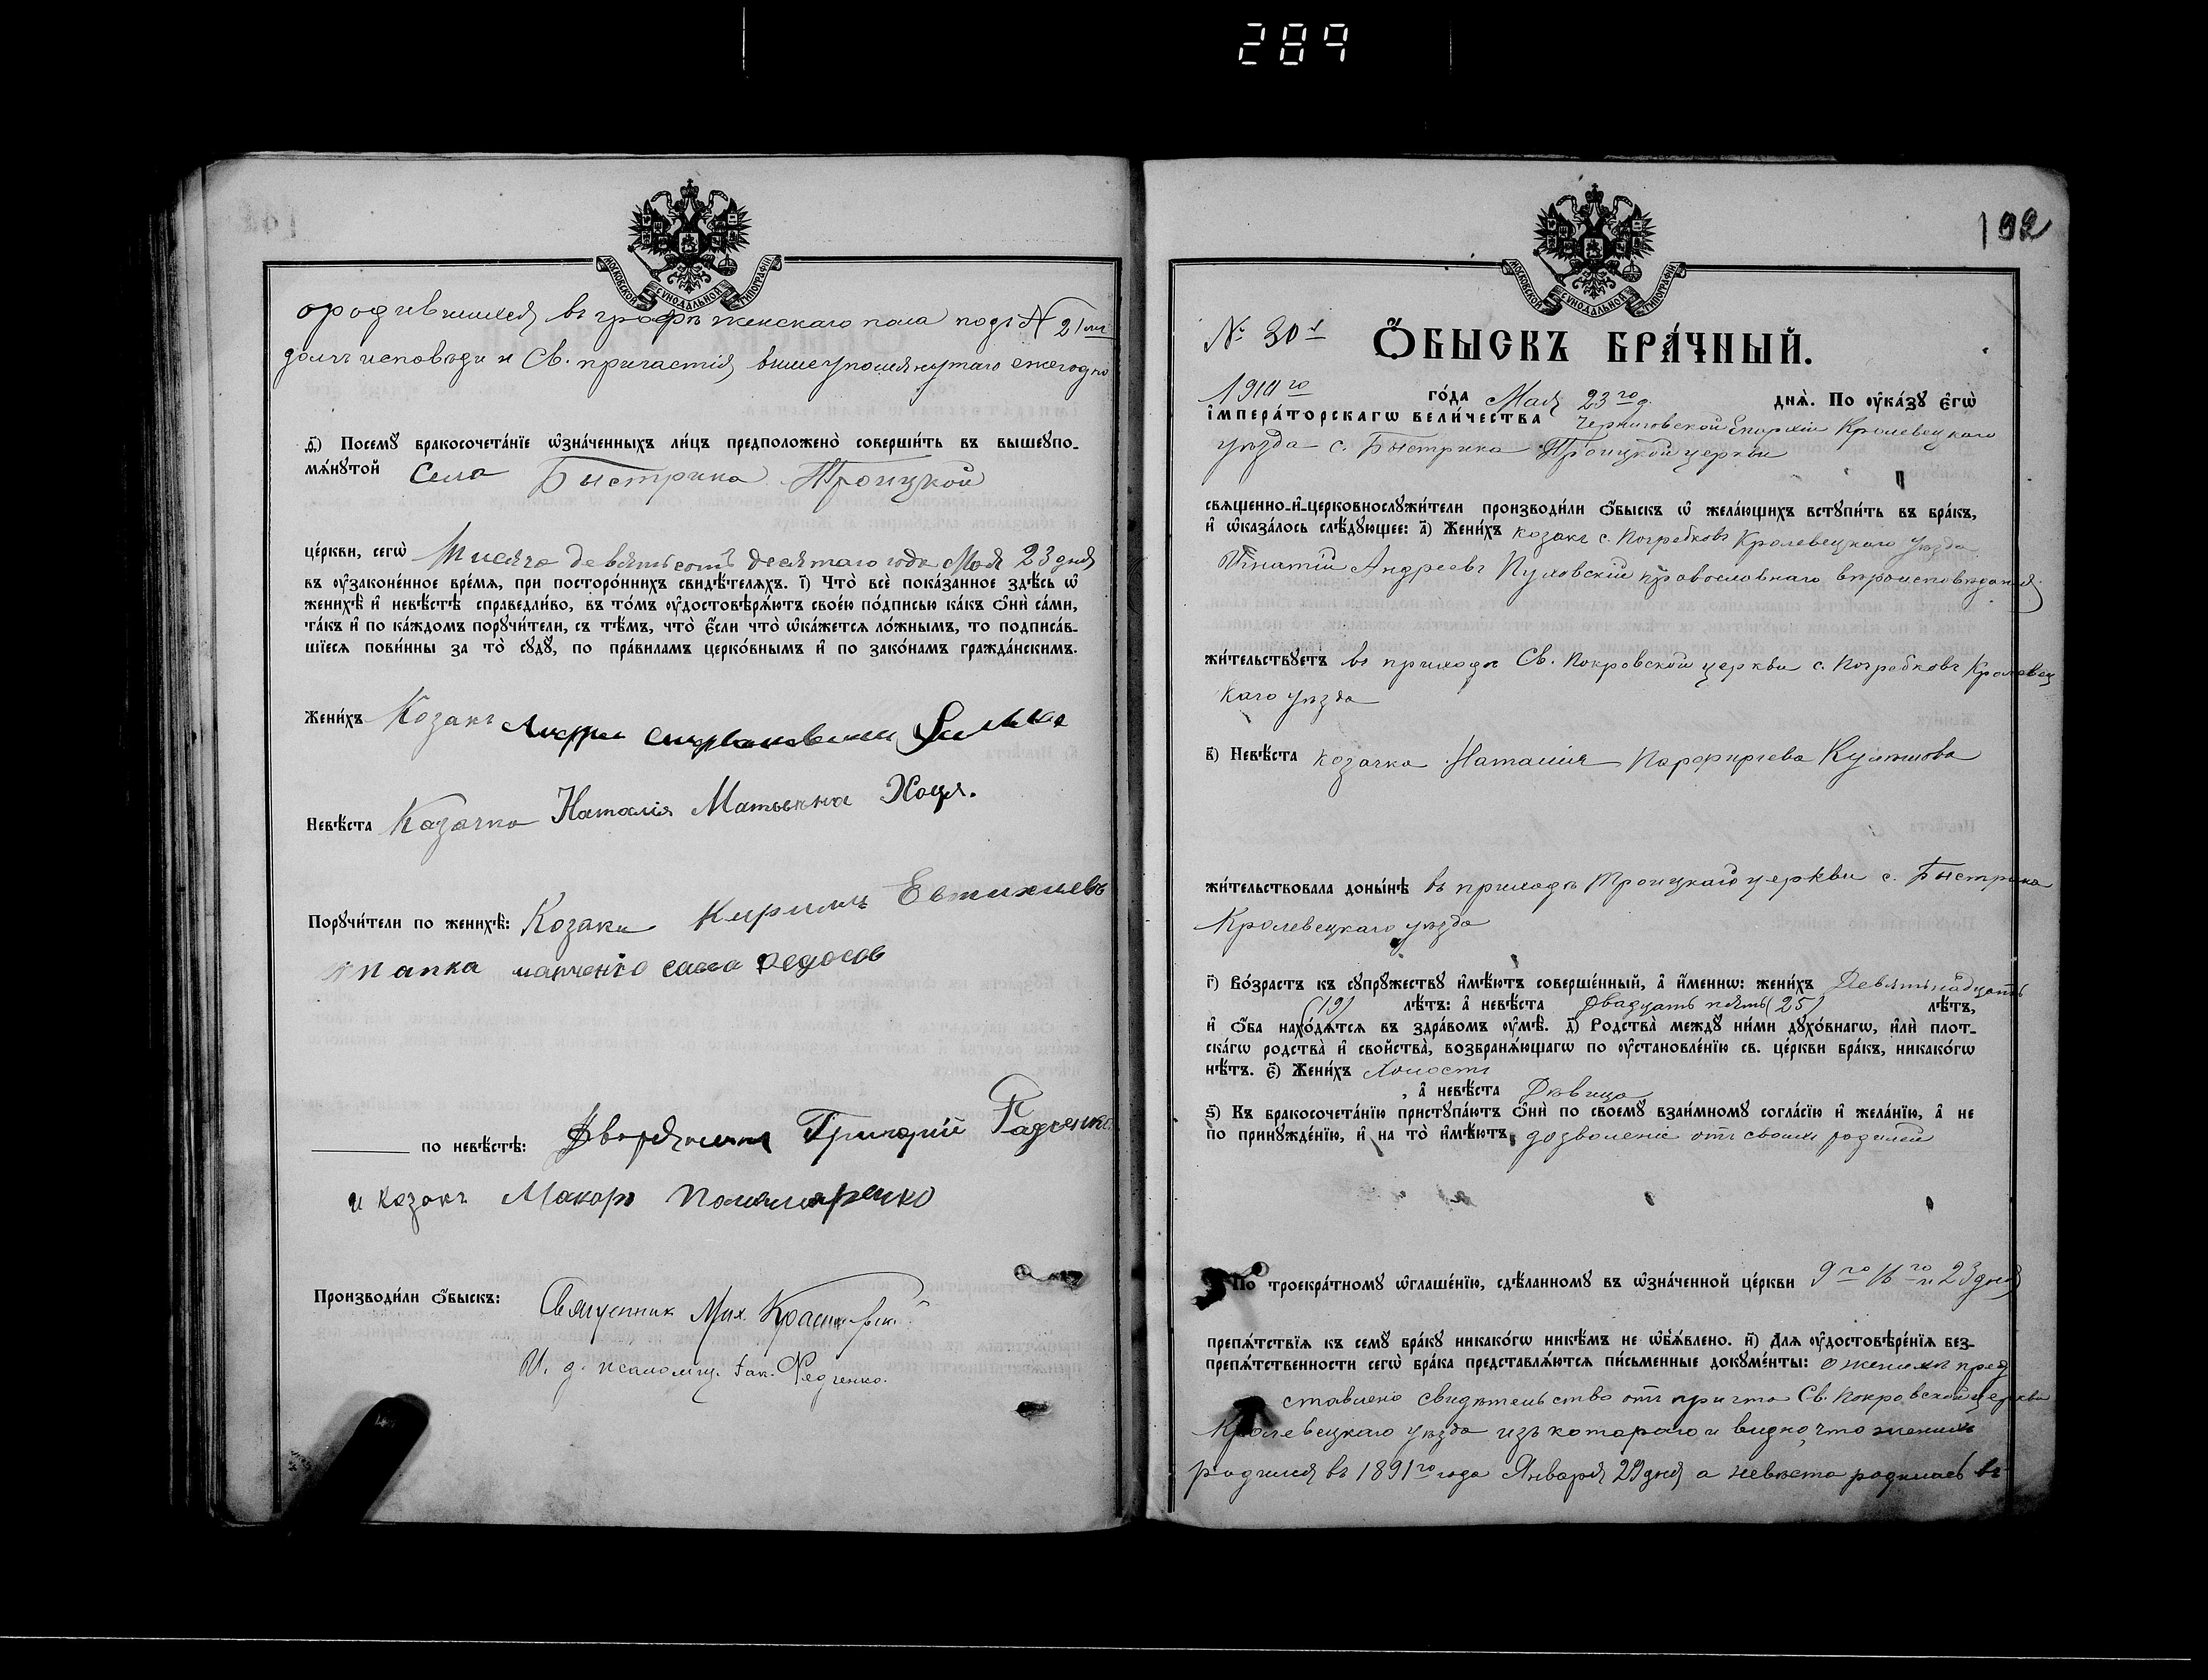 289
МОСКОВСКОЙ СѴНОДАЛЬНОЙ ТИПОГРАФІИ
ородившихся въ графѣ женскаго пола подъ № 21 мъ
долгъ исповѣди и Св. причастія вышеупомянутаго ежегодно
Посемꙋ бракосочета́нїе ѡ҆зна́ченныхъ ли́цъ предположено̀ соверши́ть въ вышеꙋпо-
мѧ́нꙋтой Села Быстрика Троицкой
це́ркви, сегѡ̀ тысяча девятьсотъ десятаго года Мая 23 дня
въ ᲂу҆законе́нное вре́мѧ, при посторо́ннихъ свидѣ́телѧхъ. і҃) Что̀ всѐ пока́занное здѣ́сь ѡ҆
женихѣ̀ и҆ невѣ́стѣ справедли́во, въ то́мъ ᲂу҆достовѣрѧ́ютъ свое́ю по́дписью ка́къ ѻ҆нѝ са́ми,
та́къ и҆ по ка́ждомъ порꙋчи́тели, съ тѣ́мъ, что̀ є҆́сли что̀ ѡ҆ка́жетсѧ ло́жнымъ, то подписа́в-
шїесѧ пови́нны за то̀ сꙋдꙋ̀, по пра́виламъ церко́внымъ и҆ по зако́намъ гражда́нскимъ.
Жени́хъ Козакъ
Невѣ́ста Козачка Наталія Матвѣевна Хоця.
Порꙋчи́тели по женихѣ̀: Козаки Кирилъ Евтихиевъ
папка марченко сава Федосов
по невѣ́стѣ: Дворянинъ Григорій Радченко
и козакъ Макаръ Пономаренко
Производи́ли ѻ҆́быскъ: Священник Мих.
И. д. псаломщ. Іак. Федченко.
192
МОСКОВСКОЙ СѴНОДАЛЬНОЙ ТИПОГРАФІИ
№ 30 й
Ѻ҆́БЫСКЪ БРА́ЧНЫЙ.
1910 го го́да Мая 23 го д. днѧ̀. По ᲂу҆ка́зꙋ є҆гѡ̀
і҆мпера́торскагѡ вели́чества Черниговской Епархіи Кролевецкаго
уѣзда с. Быстрика Троицкой церкви
свѧщенно-и҆-церковнослꙋжи́тели производи́ли ѻ҆́быскъ ѡ҆ жела́ющихъ встꙋпи́ть въ бра́къ,
и҆ ѡ҆каза́лось слѣ́дꙋющее: а҃) Жени́хъ козакъ с. Погребковъ Кролевецкаго уѣзда
Игнатій Андреевъ Пуховскій православнаго вѣроисповѣданія
жи́тельствꙋетъ въ приходѣ Св. Покровской церкви с. Погребковъ Кролевец
каго уѣзда
в҃) Невѣ́ста козачка Наталія Порфиріева Кулешова
жи́тельствовала доны́нѣ въ приходѣ Троицкаго церкви с. Быстрика
Кролевецкаго уѣзда
г҃) Во́зрастъ къ сꙋпрꙋ́жествꙋ и҆мѣ́ютъ соверше́нный, а҆ и҆́меннѡ: жени́хъ Девятнадцать
(19) лѣ́тъ: а҆ невѣ́ста двадцать пять (25) лѣ́тъ,
и҆ ѻ҆́ба нахо́дѧтсѧ въ здра́вомъ ᲂу҆мѣ̀. д҃) Родства̀ междꙋ̀ ни́ми дꙋхо́внагѡ, и҆лѝ плот-
ска́гѡ родства̀ и҆ сво́йства̀, возбранѧ́ющагѡ по ᲂу҆становле́нїю св. це́ркви бра́къ, никако́гѡ
нѣ́тъ. є҃) Жени́хъ Холостъ
, а҆ невѣ́ста Дѣвица
ѕ҃) Къ бракосочета́нїю пристꙋпа́ютъ ѻ҆нѝ по своемꙋ̀ взаи́мномꙋ согла́сїю и҆ жела́нїю, а҆ не
по принꙋжде́нїю, и҆ на то̀ и҆мѣ́ютъ дозволеніе отъ своихъ родилей
По троекра́тномꙋ ѡ҆глаше́нїю, сдѣ́ланномꙋ въ ѡ҆зна́ченной це́ркви 9 го 16 го и 23 дней
препѧ́тствїѧ къ семꙋ̀ бра́кꙋ никако́гѡ никѣ́мъ не ѡ҆б̾ѧ́влено. и҃) Длѧ ᲂу҆достовѣре́нїѧ без-
препѧ́тственности сегѡ̀ бра́ка представлѧ́ютсѧ пи́сьменные докꙋме́нты: о женихѣ пред
ставлено свидѣтельство отъ причта Св. Покровской церкви
Кролевецкаго уѣзда изъ котораго и видно, что женихъ
родился въ 1891 го года Января 29 дня а невѣста родилась въ